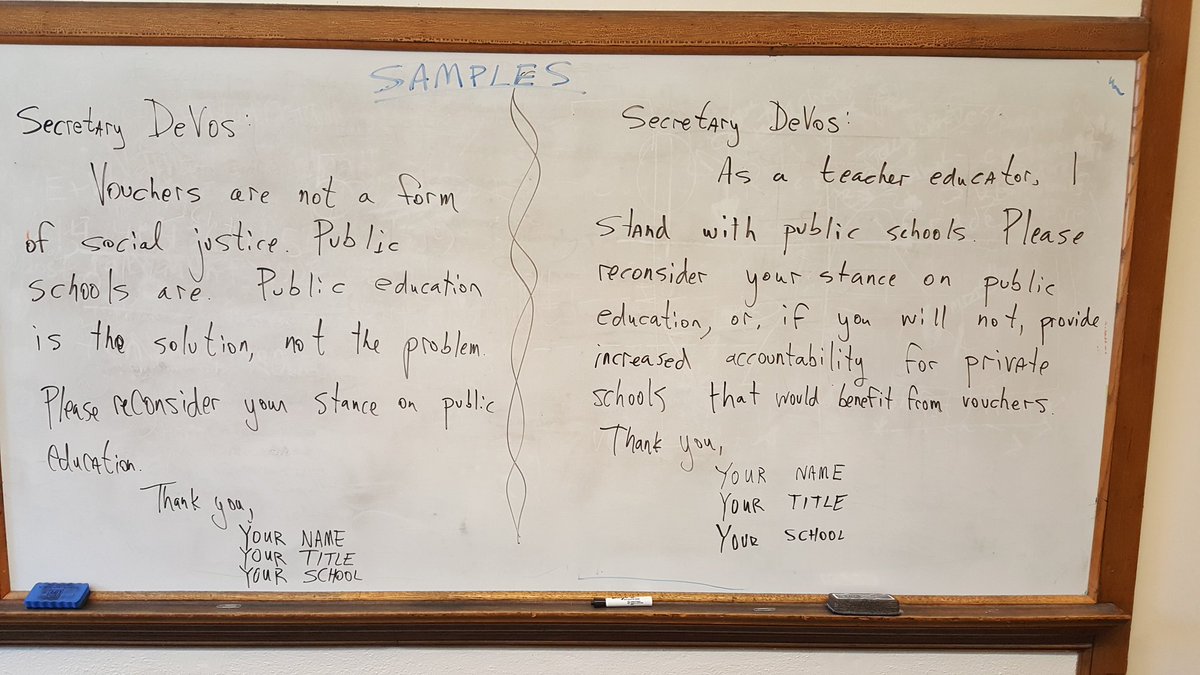 SAMPLES
Secretary DeVos:
Vouchers are not a form
of social justice. Public
schools are. Public education
is the solution, not the problem.
Please reconsider your stance on public
education.
Thank you,
YOUR NAME
YOUR TITLE
YOUR SCHOOL
Secretary DeVos:
As a teacher educator, I
stand with public schools. Please
reconsider your stance on public
education, or, if you will not, provide
increased accountability for private
schools that would benefit from vouchers.
Thank you,
YOUR NAME
YOUR TITLE
YOUR SCHOOL